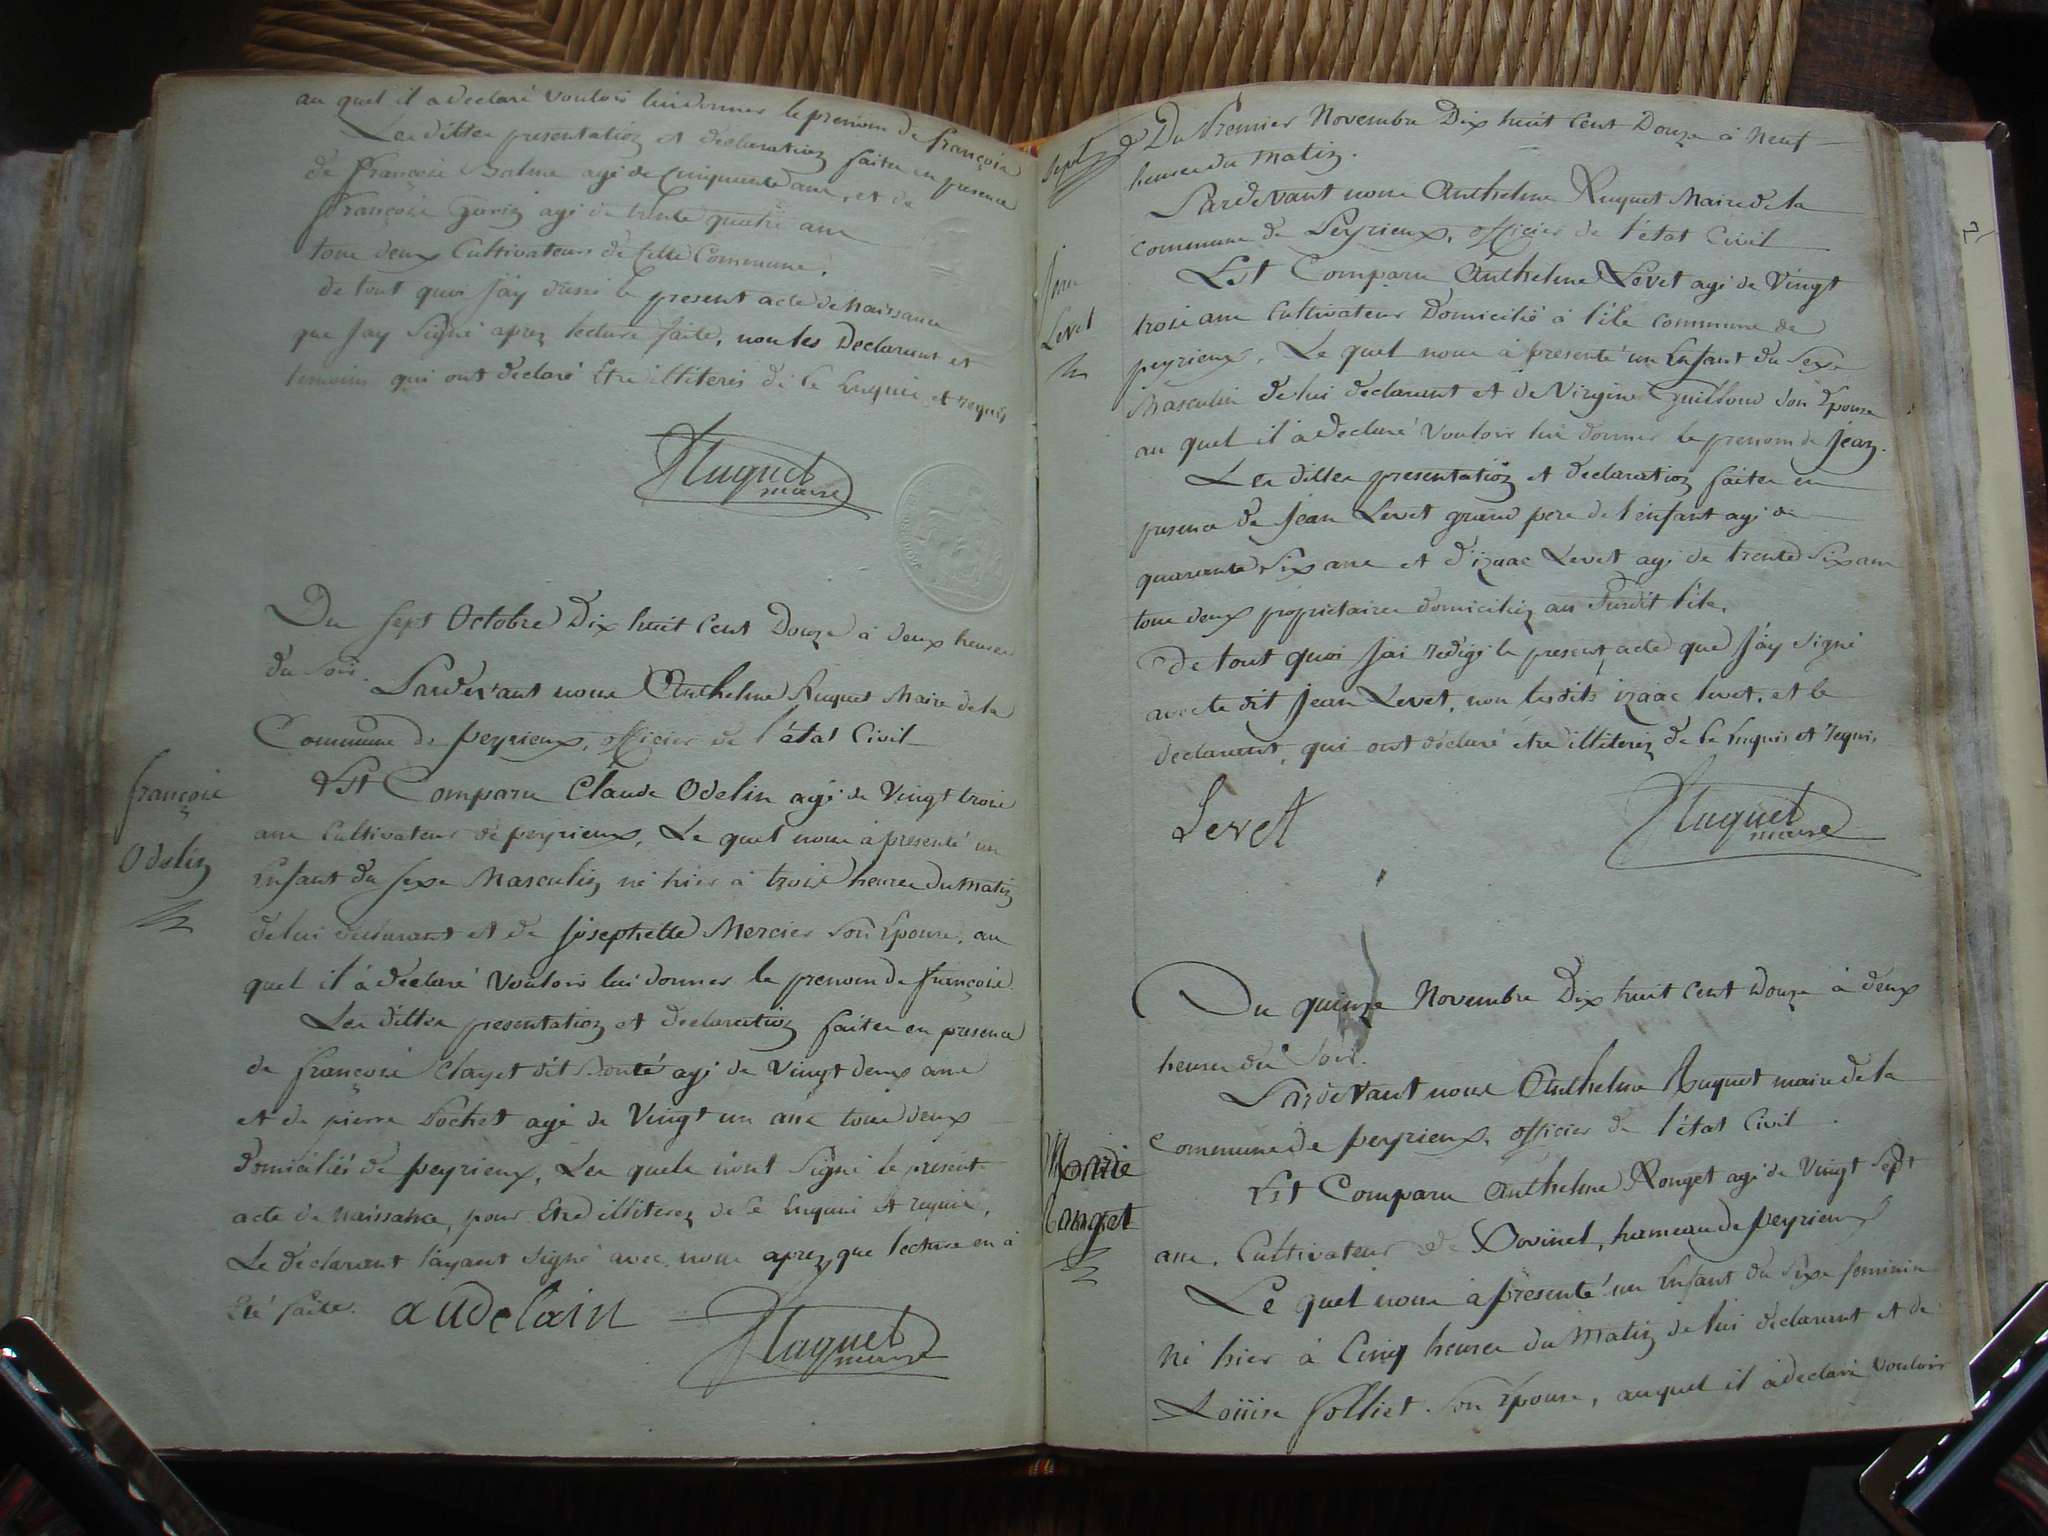 au quel il a declaré vouloir lui donner le prenom de françois
Les dittes presentation et declaration faites en presence
de françois Balme agé de Cinquante ans, et de
françois agé de trente quatre ans
tous deux Cultivateurs de Cette Commune.
de tout quoi J'ay dressé le present acte de naissance
que J'ay Signé aprez lecture faite, non les Declarant et
temoins qui ont declaré Etre illiteres de ce Enquis et requis
Huguet
maire
Du sept Octobre Dix huit Cent Douze à deux heures
du soir.
Pardevant nous Anthelme Huguet Maire de la
Commune de peyrieux, officier de l'état Civil
françois
Odelin
Est Comparu Claude Odelin agé de Vingt trois
ans Cultivateur de peyrieux, Le quel nous à presenté un
Enfant du sexe Masculin né hier à trois heures du matin
de lui declarant et de Josephette Mercier son Epouse, au
quel il à declaré Vouloir lui donner le prenom de françois.
Les dittes presentation et declaration faites en presence
de françois Clayet dit agé de Vingt deux ans
et de pierre Pochet agé de Vingt un ans tous deux
domiciliés de peyrieux, Les quels n'ont Signé le present
acte de naissance, pour Etre illiterez de ce Enquis et requis,
Le declarant l'ayant signé avec nous aprez que lecture en à
Eté faite.
audelain
Huguet
maire
Sept
Du Premier Novembre Dix huit Cent Douze à Neuf
heures du Matin.
Pardevant nous Anthelme Huguet Maire de la
commune de Peyrieux, officier de l'état Civil
Jean
Levet
Est Comparu Anthelme Levet agé de Vingt
trois ans Cultivateur Domicilié à l'ile commune de
peyrieux, Le quel nous à presenté un Enfant du Sexe
Masculin de lui declarant et de Virgine Guilloud son Epouse
au quel il à declaré Vouloir lui donner le prenom de Jean.
Les dittes presentation et declaration faites en
presence de Jean Levet grand pere de l'enfant agé de
quarante six ans et d'izaac Levet agé de trente six ans
tous deux propietaires domiciliez au Susdit l'ile,
de tout quoi J'ai redigé le present acte que J'ay signé
avec le dit Jean Levet, non lesdits izaac levet, et le
declarant, qui ont declaré etre illiterez de ce Enquis et requis,
Levet
Huguet
maire
Du quinze Novembre Dix huit Cent Douze à deux
heures du soir.
Pardevant nous Anthelme Huguet maire de la
commune de peyrieux, officier de l'état Civil.
Marie
Ronget
Est Comparu Anthelme Ronget agé de Vingt sept
ans, Cultivateur de Dovinel, hameau de peyrieux
Le quel nous à presenté un Enfant du Sexe feminin
né hier à Cinq heures du Matin de lui declarant et de
Loüise Jolliet son Epouse, auquel il à declaré vouloir